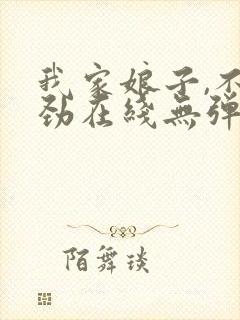 我家娘子,不
劲在线無彈
陌舞琰